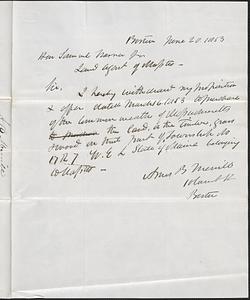 Boston June 20. 1853
Hon Samuel Warner Jr.
Land Agent of Masstts
Sir, I hereby withdraw my proposition
& offer dated March 16. 1853 to purchase
of the Common wealth of Massachusetts
the Land, & the timber, grass
& wood on that part of township No
17 R 7 W. E. L State of Maine belonging
to Masstts
Amos B Merrill
Boston